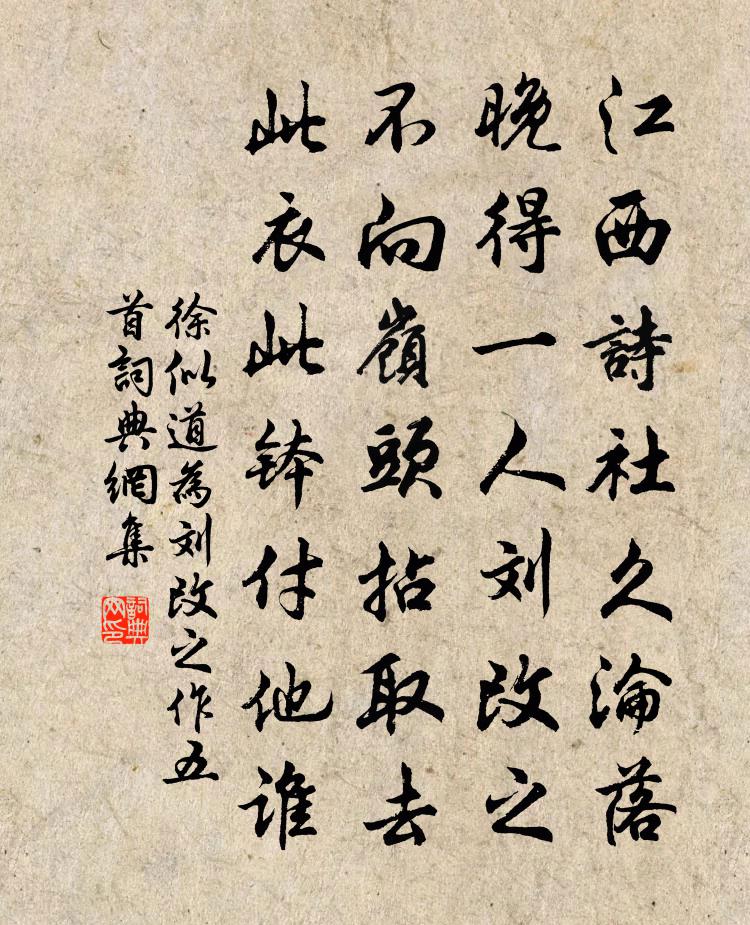 江西詩社久淪落
晚得一人刘改之
不向嶺頭拈取去
此衣此鉢付他誰
徐似道為刘改之作五
首詞典網集
詞典
网印